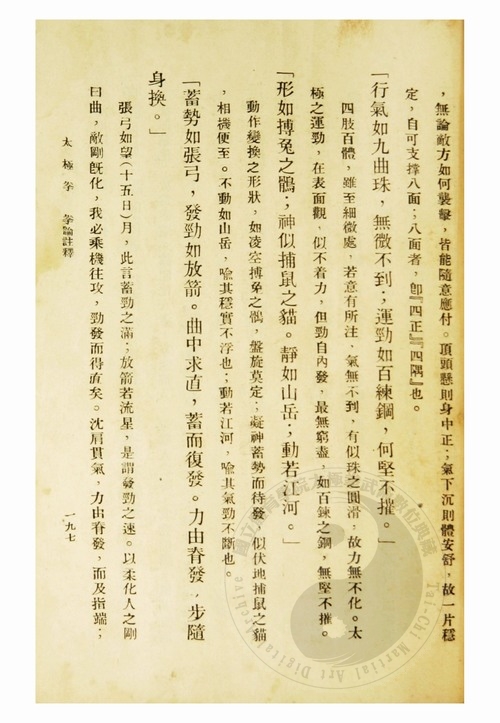 ，無論敵方如何襲擊，皆能隨意應付。頂頭懸則身中正；氣下沉則體安舒，故一片穩
定，自可支撐八面；八面者，卽『四正』『四隅』也。
「行氣如九曲珠，無微不到；運勁如百練鋼，何堅不摧。」
四肢百體，雖至細微處，若意有所注，氣無不到，有似珠之圓滑，故力無不化。太
極之運勁，在表面觀，似不着力，但勁自內發，最無窮盡，如百鍊之鋼，無堅不摧。
「形如搏兔之鶻；神似捕鼠之貓。靜如山岳；動若江河。」
動作變換之形狀，如凌空搏兔之鶻，盤旋莫定；凝神蓄勢而待發，似伏地捕鼠之貓
，相機便至。不動如山岳，喩其穩實不浮也；動若江河，喩其氣勁不斷也。
「蓄勢如張弓，發勁如放箭。曲中求直，蓄而復發。力由脊發，步隨
身換。」
張弓如望(十五日)月，此言蓄勁之滿；放箭若流星，是謂發勁之速。以柔化人之剛
曰曲，敵剛旣化，我必乘機往攻，勁發而得直矣。沈肩貫氣，力由脊發，而及指端；
太極拳　拳論註釋
一九七
國立體育學院太極武藝數位典藏
Tai-Chi Martial Art Digital Archive